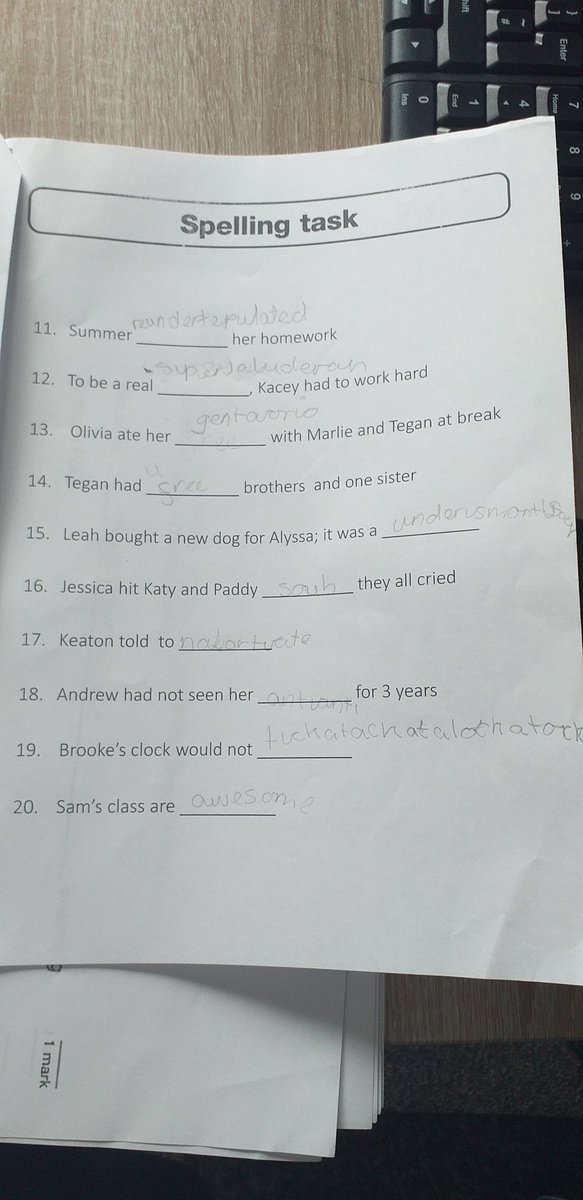 Spelling task
11. Summer reundertepulated her homework
12. To be a real _________, Kacey had to work hard
13. Olivia ate her gentavorio with Marlie and Tegan at break
14. Tegan had _________ brothers and one sister
15. Leah bought a new dog for Alyssa; it was a _________
16. Jessica hit Katy and Paddy _________ they all cried
17. Keaton told to _________
18. Andrew had not seen her _________ for 3 years
19. Brooke's clock would not tuckatachatalothatock
20. Sam's class are awesome
1 mark